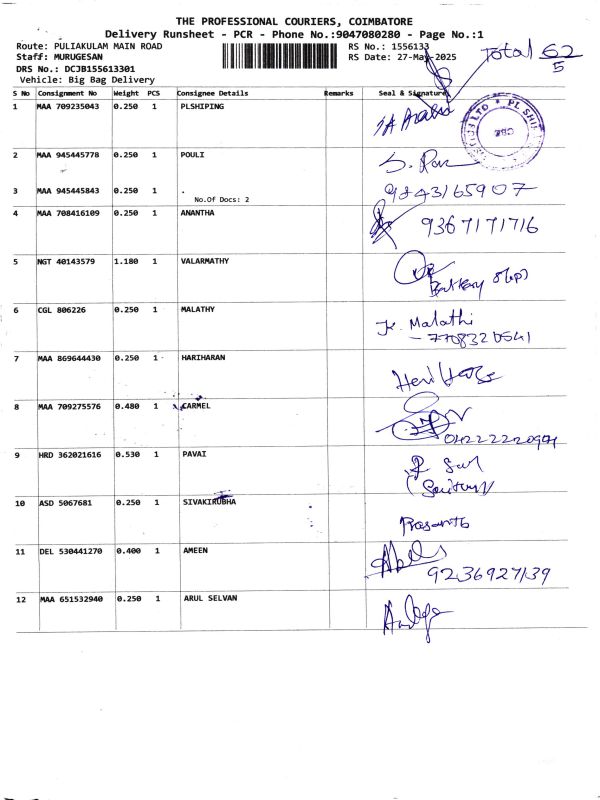 THE PROFESSIONAL COURIERS, COIMBATORE
Delivery Runsheet - PCR - Phone No.:9047080280 - Page No.:1
Route: PULIAKULAM MAIN ROAD RS No.: 1556133
Staff: MURUGESAN RS Date: 27-May-2025
Total 62/5
DRS No.: DCJB155613301
Vehicle: Big Bag Delivery
S No Consignment No Weight PCS Consignee Details Remarks Seal & Signature
1 MAA 709235043 0.250 1 PLSHIPING
2 MAA 945445778 0.250 1 POULI
3 MAA 945445843 0.250 1 . 9843165907
No.Of Docs: 2
4 MAA 708416109 0.250 1 ANANTHA 9367171716
5 NGT 40143579 1.180 1 VALARMATHY
6 CGL 806226 0.250 1 MALATHY K. Malathi
7 MAA 869644430 0.250 1 HARIHARAN
8 MAA 709275576 0.480 1 CARMEL
9 HRD 362021616 0.530 1 PAVAI
10 ASD 5067681 0.250 1 SIVAKIRUBHA Prasanth
11 DEL 530441270 0.400 1 AMEEN
9236927139
12 MAA 651532940 0.250 1 ARUL SELVAN